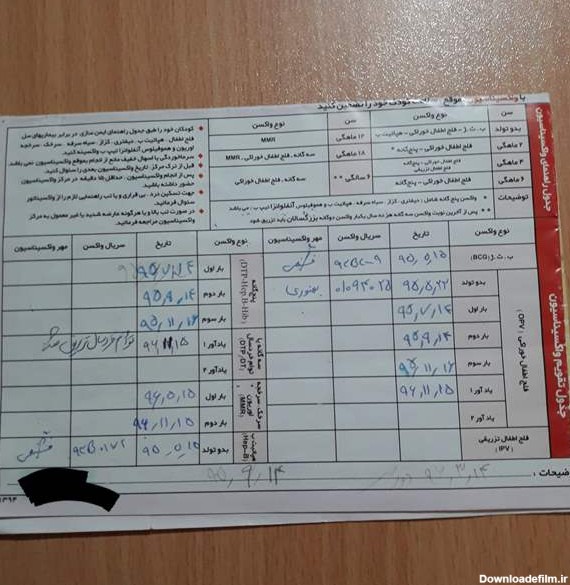 با واکسیناسیون به موقع کودک خود را تضمین کنید
جدول راهنمای واکسیناسیون
سن
نوع واکسن
سن
نوع واکسن
بدو تولد
ب.ث.ژ - فلج اطفال خوراکی - هپاتیت ب
۱۲ ماهگی
MMR
۲ ماهگی
فلج اطفال خوراکی - پنجگانه *
۱۸ ماهگی
سه گانه، فلج اطفال خوراکی، MMR
۴ ماهگی
فلج اطفال خوراکی - پنجگانه
فلج اطفال تزریقی
۶ سالگی **
سه گانه، فلج اطفال خوراکی
۶ ماهگی
فلج اطفال خوراکی - پنجگانه
توضیحات
* واکسن پنج گانه شامل: دیفتری، کزاز، سیاه سرفه، هپاتیت ب و هموفیلوس آنفلوانزا تیپ ب می باشد
** پس از آخرین نوبت واکسن سه گانه هر ده سال یکبار واکسن دوگانه بزرگسالان باید تزریق شود
کودکان خود را طبق جدول راهنمای ایمن سازی در برابر بیماریهای سل
، فلج اطفال، هپاتیت ب، دیفتری، کزاز، سیاه سرفه، سرخک، سرخجه
اوریون و هموفیلوس آنفلوانزا تیپ ب واکسینه کنید.
سرماخوردگی یا اسهال خفیف مانع از انجام بموقع واکسیناسیون نمی باشد
قبل از ترک مرکز، تاریخ واکسیناسیون بعدی را سئوال کنید.
پس از انجام واکسیناسیون، حداقل ۱۵ دقیقه در مرکز واکسیناسیون
حضور داشته باشید.
جهت تسکین درد، بی قراری و یا تب راهنمایی لازم را از واکسیناتور
سئوال فرمائید
در صورت تب بالا و یا هرگونه عارضه شدید یا غیر معمول به مرکز
واکسیناسیون مراجعه فرمائید.
جدول تقویم واکسیناسیون
نوع واکسن
تاریخ
سریال واکسن
مهر واکسیناسیون
نوع واکسن
تاریخ
سریال واکسن
مهر واکسیناسیون
ب.ث.ژ (BCG)
۹۵٫۵٫۱۵
فلج اطفال خوراکی (OPV)
بدو تولد
۹۵٫۵٫۲۲
بار اول
۹۵٫۷٫۱۴
بار دوم
۹۵٫۹٫۱۴
بار سوم
۹۵٫۱۱٫۱۶
یادآور ۱
۹۶٫۱۱٫۱۵
یادآور ۲
فلج اطفال تزریقی (IPV)
پنج گانه (DTP-Hep.B-Hib)
بار اول
۹۵٫۷٫۱۴
بار دوم
۹۵٫۹٫۱۴
بار سوم
۹۵٫۱۱٫۱۶
سه گانه یا توام خردسال (DTP/DT)
یادآور ۱
۹۶٫۱۱٫۱۵
یادآور ۲
سرخک، سرخجه، اوریون (MMR)
بار اول
۹۶٫۵٫۱۵
بار دوم
۹۶٫۱۱٫۱۵
هپاتیت ب (Hep-B)
بدو تولد
۹۵٫۵٫۱۵
توضیحات :
۹۶٫۳٫۱۴
۹۵٫۹٫۱۴
Downloadefilm.ir